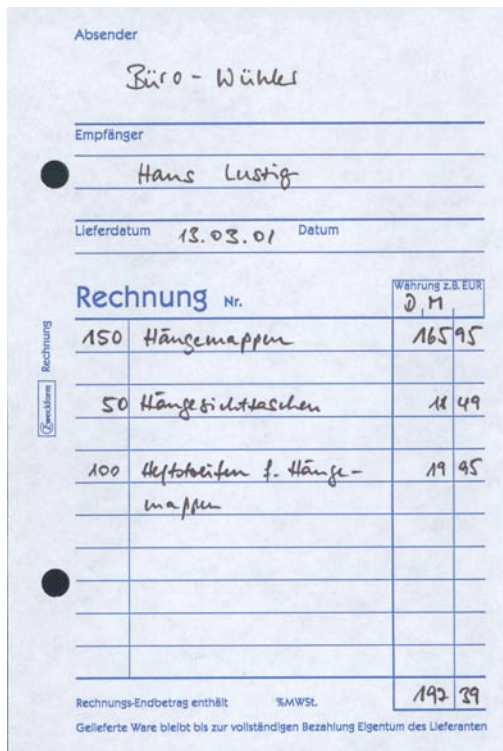 Absender
Büro - Wühler
Empfänger
Hans Lustig
Lieferdatum 13.03.01 Datum
Rechnung Nr. Währung z.B. EUR
D M
150 Hängemappen 165 95
50 Hängesichttaschen 11 49
100 Heftstreifen f. Hänge- 19 95
mappen
Rechnungs-Endbetrag enthält %MWSt. 197 39
Gelieferte Ware bleibt bis zur vollständigen Bezahlung Eigentum des Lieferanten
Zweckform Rechnung